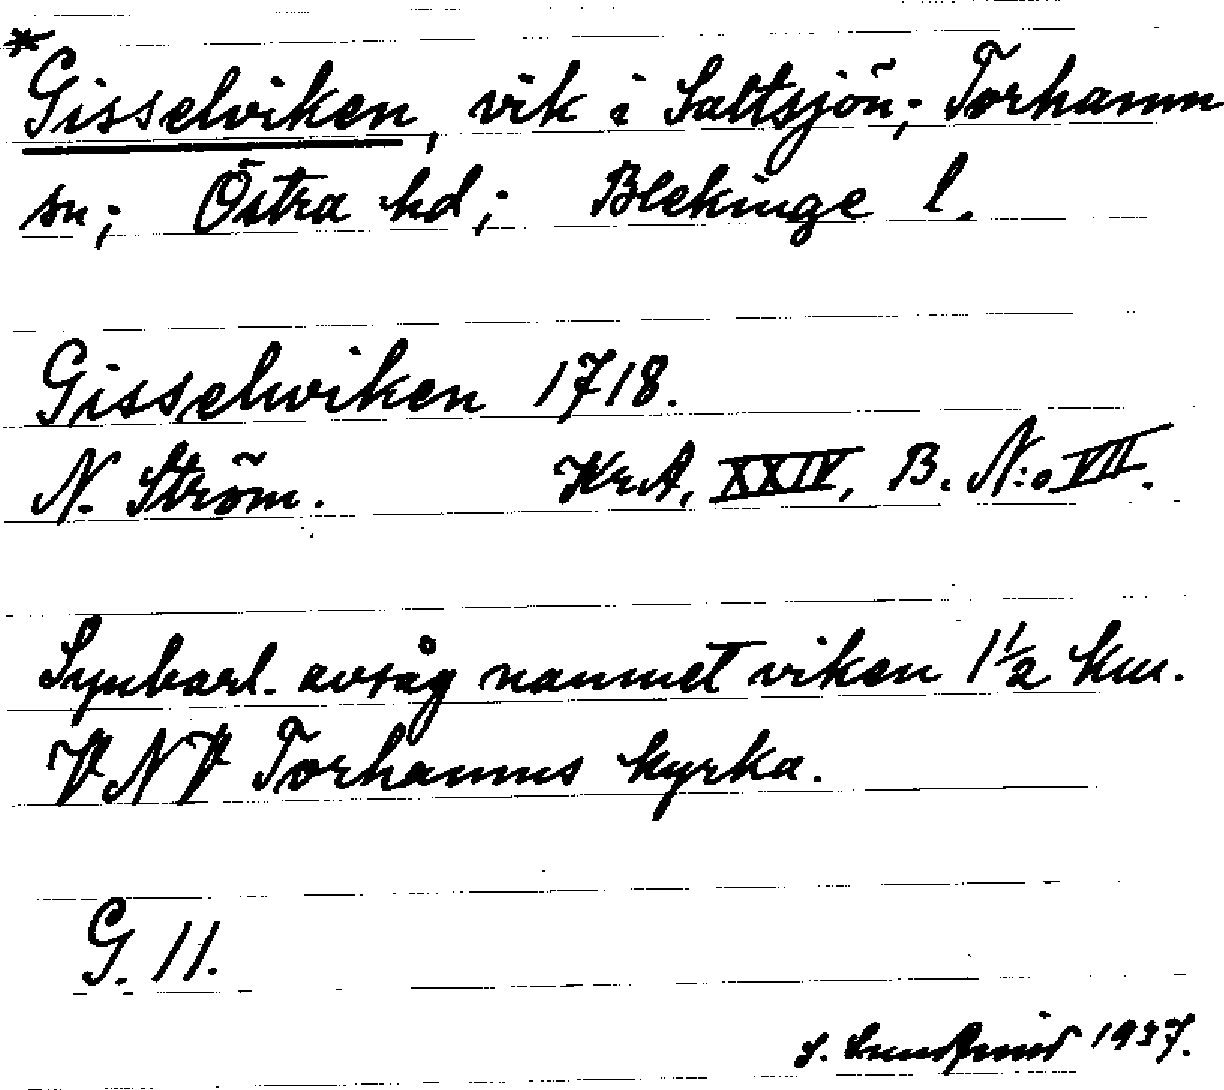 *Gisselviken, vik i Saltsjön; Torhamn
sn; Östra hd; Blekinge l.
Gisselwiken 1718.
N. Ström. KrA, XXIV, B. N:o VII.
Synbarl. avsåg namnet viken 1½ km.
VNV Torhamns kyrka.
G. 11.
1937.